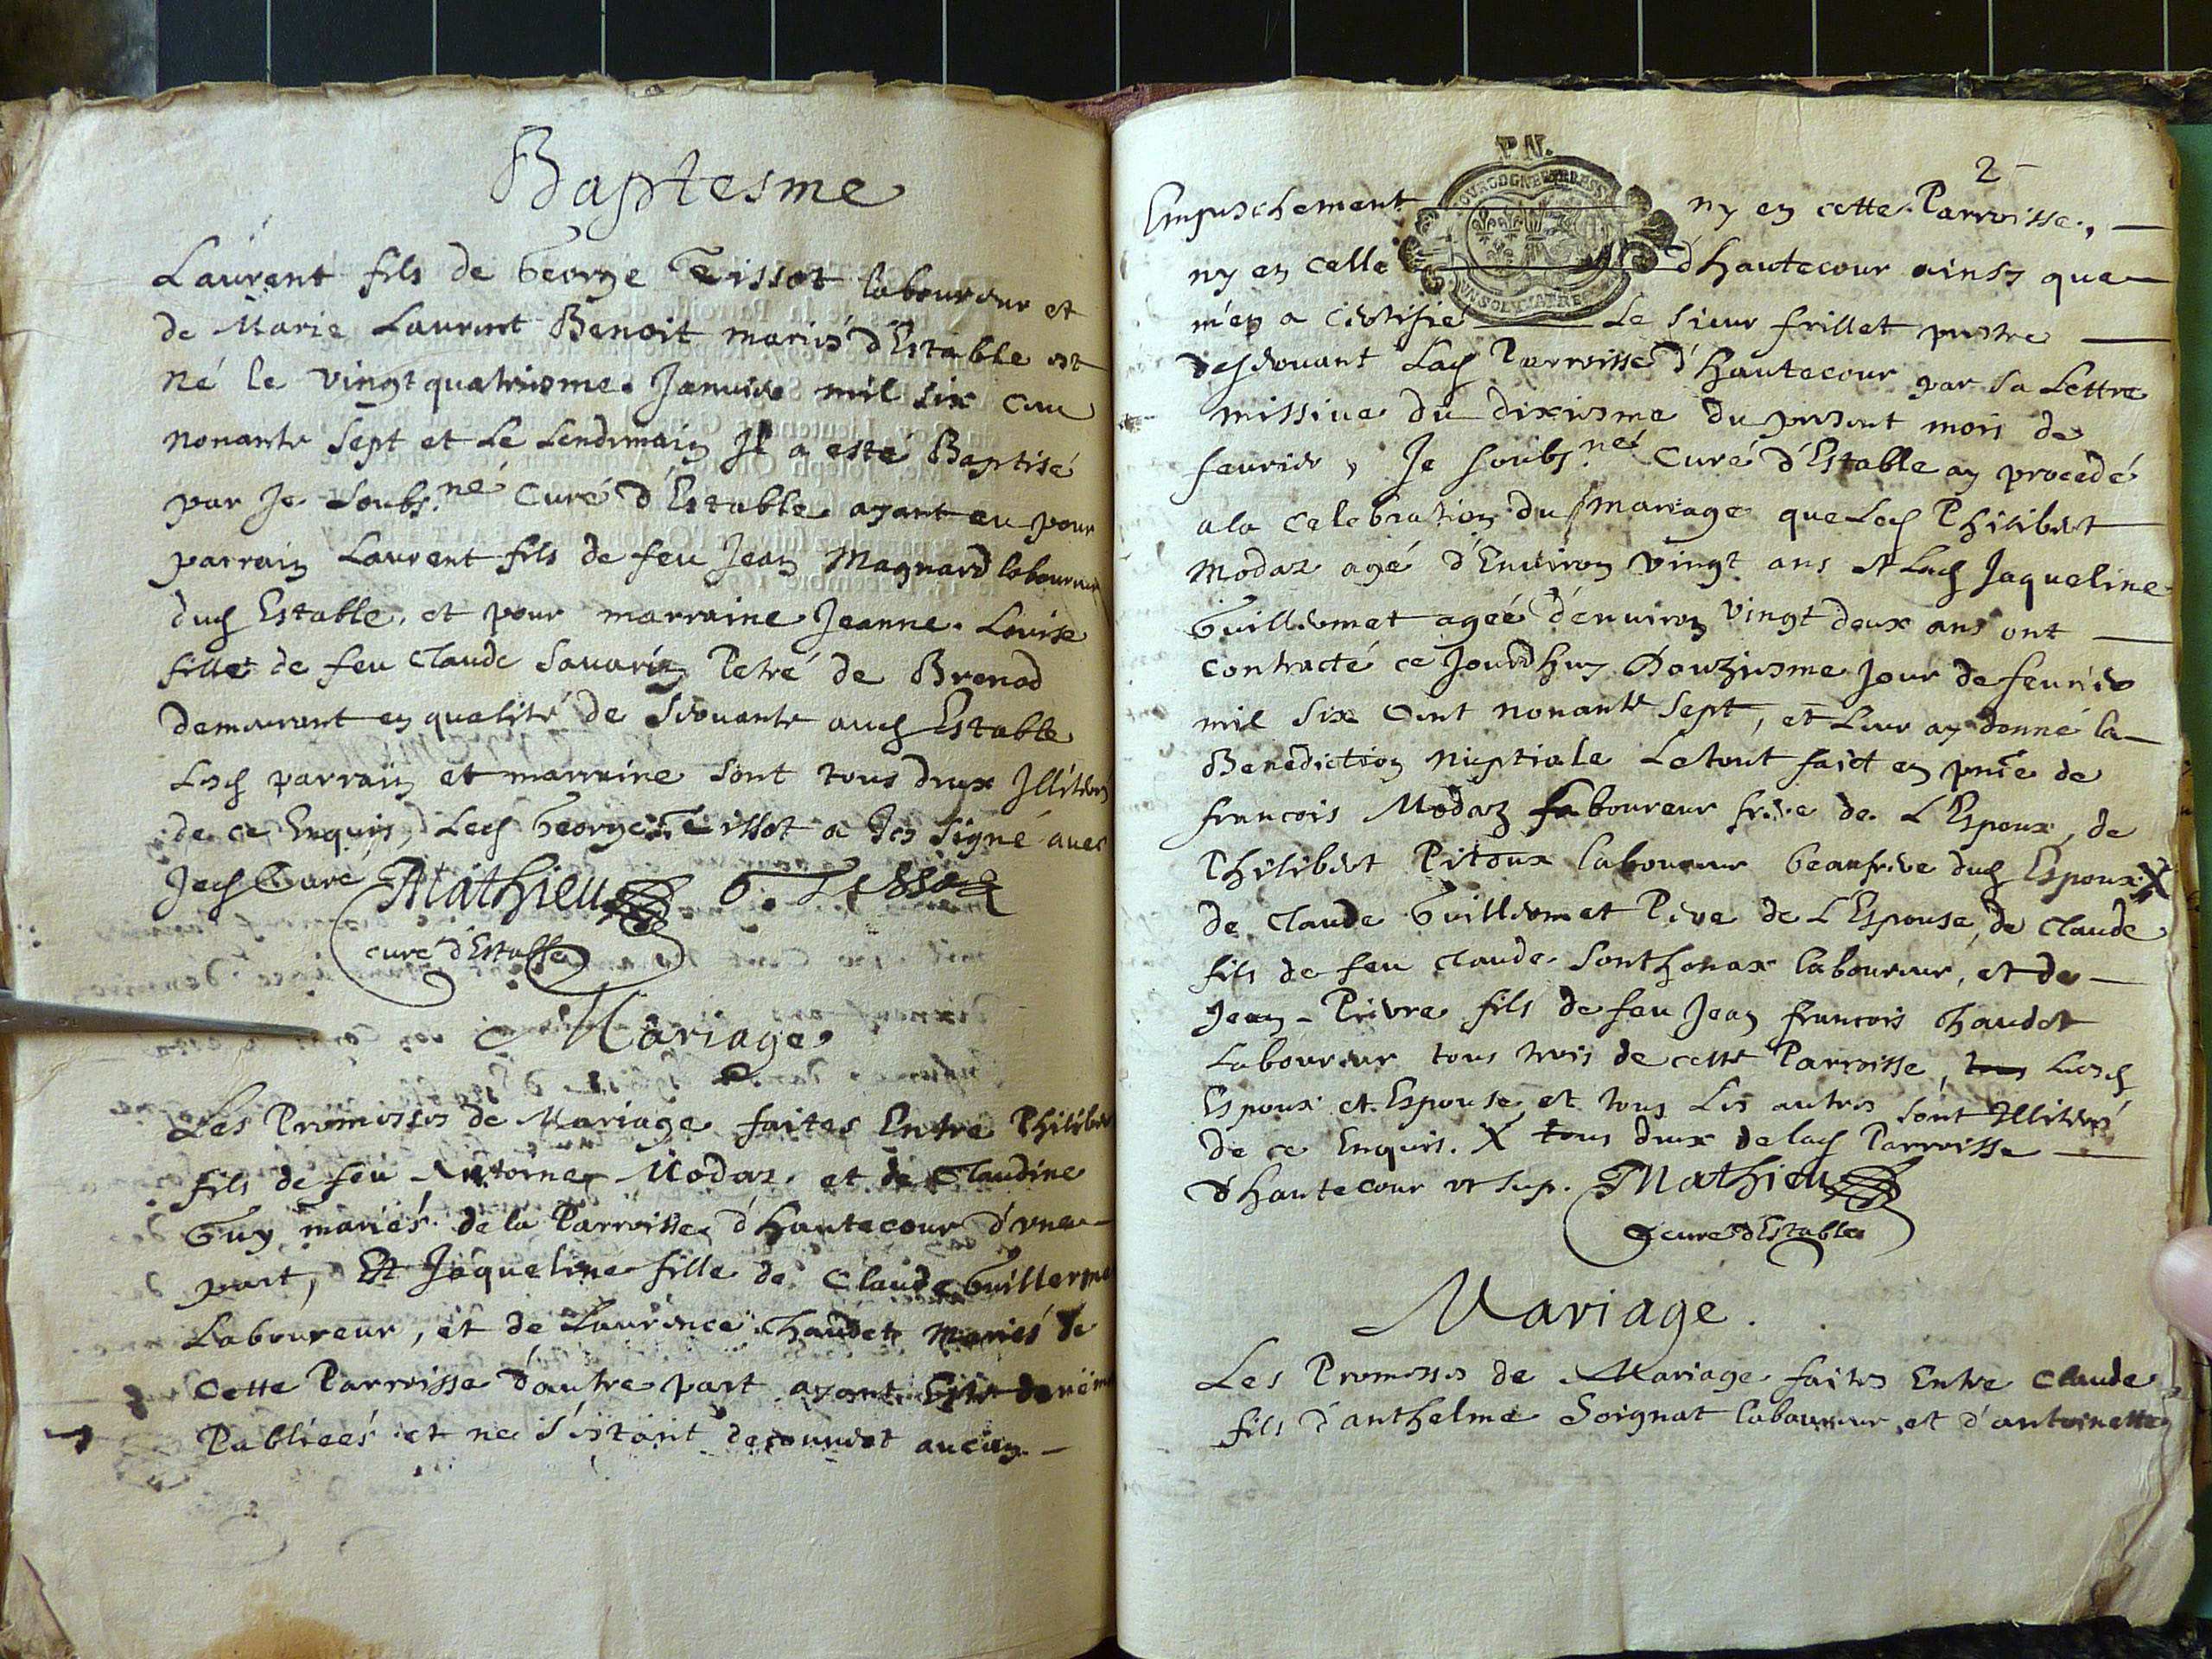 Baptesme
Laurent fils de George Teissot laboureur et
de Marie Laurent Benoit mariés d'Estable est
né le vingt quatriesme Janvier mil six cen
nonante sept et Le Lendemain Il a esté Baptisé
par Je soubs.né Curé d'Estable ayant eu pour
parrain Laurent fils de feu Jean Magnard laboureur
dud Estable, et pour marraine Jeanne Louise
fille de feu Claude Savarin Petré de Brenod
demeurant en qualité de Servante aud Estable
Lesd parrain et marraine sont tous deux Illiterés
de ce Enquis, Led George Teissot a Icy signé avec
Jed Curé Mathieu G. Tissot
curé d'Estable
Mariage
Les Promesses de Mariage faites Entre Philibert
fils de feu Antoine Modaz et de Claudine
Guy mariés de la Parroisse d'Hautecour d'une
part, Et Jaqueline fille de Claude Guillerme
Laboureur, et de Laurence Chaudet Mariés de
Cette Parroisse d'autre part ayant Esté denëm
Publiées et ne s'estant decouvert aucun
2
P.N.
Empeschement ny en cette Parroisse,
ny en celle d'hautecour ainsy que
m'en a certifié Le Sieur frillet prestre
desservant Lad Parroisse d'Hautecour par sa Lettre
missive du dixiesme du present mois de
fevrier, Je soubs.né Curé d'Estable ay procedé
a la Celebration du mariage que Led Philibert
Modaz agé d'Environ vingt ans et Lad Jaqueline
Guillermet agée d'environ vingt deux ans ont
contracté ce Jourdhuy Douziesme Jour de fevrier
mil six Cent nonante sept, et Leur ay donné la
Benediction nuptiale Le tout faict en pnce de
francois Modaz Laboureur frere de L'Espoux, de
Philibert Pitoux laboureur beaufrere dud Espoux X
de Claude Guillermet Pere de L'Espouse, de Claude
fils de feu Claude Sonthonax laboureur, et de
Jean-Pierre fils de feu Jean francois Chaudet
Laboureur tous trois de cette Parroisse, tous Lesd
Espoux et Espouse et tous Les autres sont Illiterés
De ce Enquis. X tous deux de lad Parroisse
d'hautecour ut sup. Mathieu
curé d'Estable
Mariage.
Les Promesses de Mariage faites Entre Claude
fils d'anthelme Soignat laboureur et d'antoinette